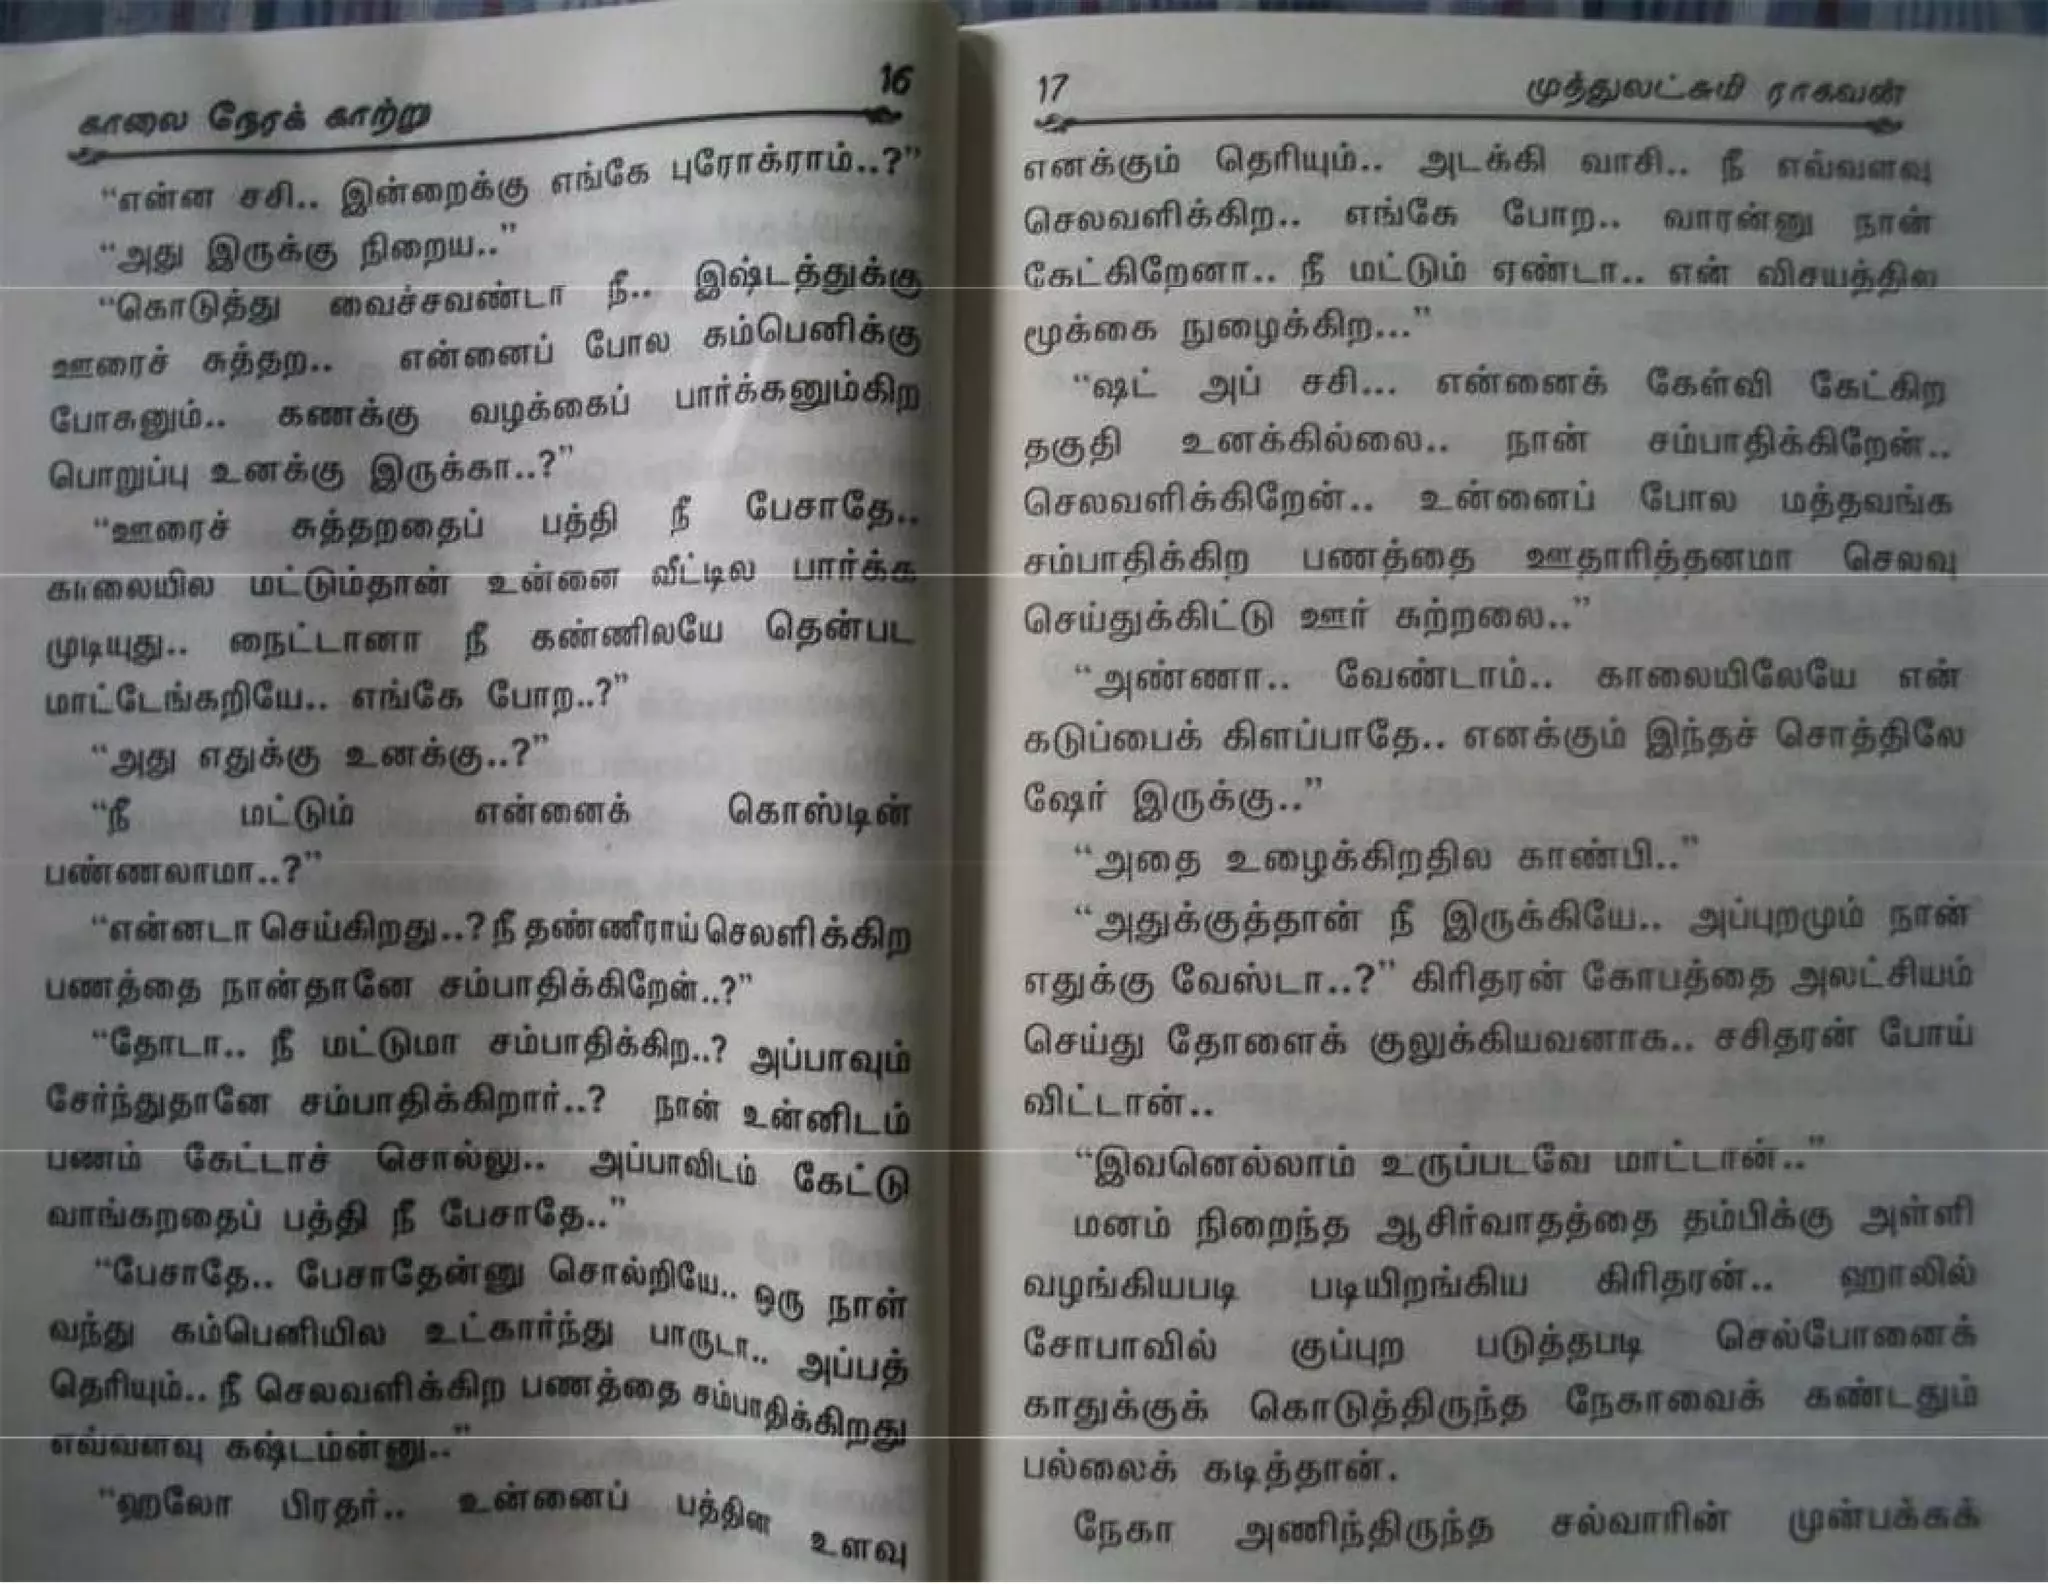 16
காலை நேரக் காற்று
“என்ன சசி.. இன்றைக்கு எங்கே புரோக்ராம்..?”
“அது இருக்கு நிறைய..”
“கொடுத்து வைச்சவண்டா நீ.. இஷ்டத்துக்கு
ஊரைச் சுத்தற.. என்னைப் போல கம்பெனிக்கு
போகனும்.. கணக்கு வழக்கைப் பார்க்கனும்கிற
பொறுப்பு உனக்கு இருக்கா..?”
“ஊரைச் சுத்தறதைப் பத்தி நீ பேசாதே..
காலையில மட்டும்தான் உன்னை வீட்டில பார்க்க
முடியுது.. நைட்டானா நீ கண்ணிலயே தென்பட
மாட்டேங்கறியே.. எங்கே போற..?”
“அது எதுக்கு உனக்கு..?”
“நீ மட்டும் என்னைக் கொஸ்டின்
பண்ணலாமா..?”
“என்னடா செய்கிறது..? நீ தண்ணீராய் செலளிக்கிற
பணத்தை நான்தானே சம்பாதிக்கிறேன்..?”
“தோடா.. நீ மட்டுமா சம்பாதிக்கிற..? அப்பாவும்
சேர்ந்துதானே சம்பாதிக்கிறார்..? நான் உன்னிடம்
பணம் கேட்டாச் சொல்லு.. அப்பாவிடம் கேட்டு
வாங்கறதைப் பத்தி நீ பேசாதே..”
“பேசாதே.. பேசாதேன்னு சொல்றியே.. ஒரு நாள்
வந்து கம்பெனியில உட்கார்ந்து பாருடா.. அப்பத்
தெரியும்.. நீ செலவளிக்கிற பணத்தை சம்பாதிக்கிறது
எவ்வளவு கஷ்டம்ன்னு..”
“ஹலோ பிரதர்.. உன்னைப் பத்தின உளவு
17
முத்துலட்சுமி ராகவன்
எனக்கும் தெரியும்.. அடக்கி வாசி.. நீ எவ்வளவு
செலவளிக்கிற.. எங்கே போற.. வாரன்னு நான்
கேட்கிறேனா.. நீ மட்டும் ஏண்டா.. என் விசயத்தில
மூக்கை நுழைக்கிற...”
“ஷட் அப் சசி... என்னைக் கேள்வி கேட்கிற
தகுதி உனக்கில்லை.. நான் சம்பாதிக்கிறேன்..
செலவளிக்கிறேன்.. உன்னைப் போல மத்தவங்க
சம்பாதிக்கிற பணத்தை ஊதாரித்தனமா செலவு
செய்துக்கிட்டு ஊர் சுற்றலை..”
“அண்ணா.. வேண்டாம்.. காலையிலேயே என்
கடுப்பைக் கிளப்பாதே.. எனக்கும் இந்தச் சொத்திலே
ஷேர் இருக்கு..”
“அதை உழைக்கிறதில காண்பி..”
“அதுக்குத்தான் நீ இருக்கியே.. அப்புறமும் நான்
எதுக்கு வேஸ்டா..?” கிரிதரன் கோபத்தை அலட்சியம்
செய்து தோளைக் குலுக்கியவனாக.. சசிதரன் போய்
விட்டான்..
“இவனெல்லாம் உருப்படவே மாட்டான்..”
மனம் நிறைந்த ஆசிர்வாதத்தை தம்பிக்கு அள்ளி
வழங்கியபடி படியிறங்கிய கிரிதரன்.. ஹாலில்
சோபாவில் குப்புற படுத்தபடி செல்போனைக்
காதுக்குக் கொடுத்திருந்த நேகாவைக் கண்டதும்
பல்லைக் கடித்தான்.
நேகா அணிந்திருந்த சல்வாரின் முன்பக்கக்